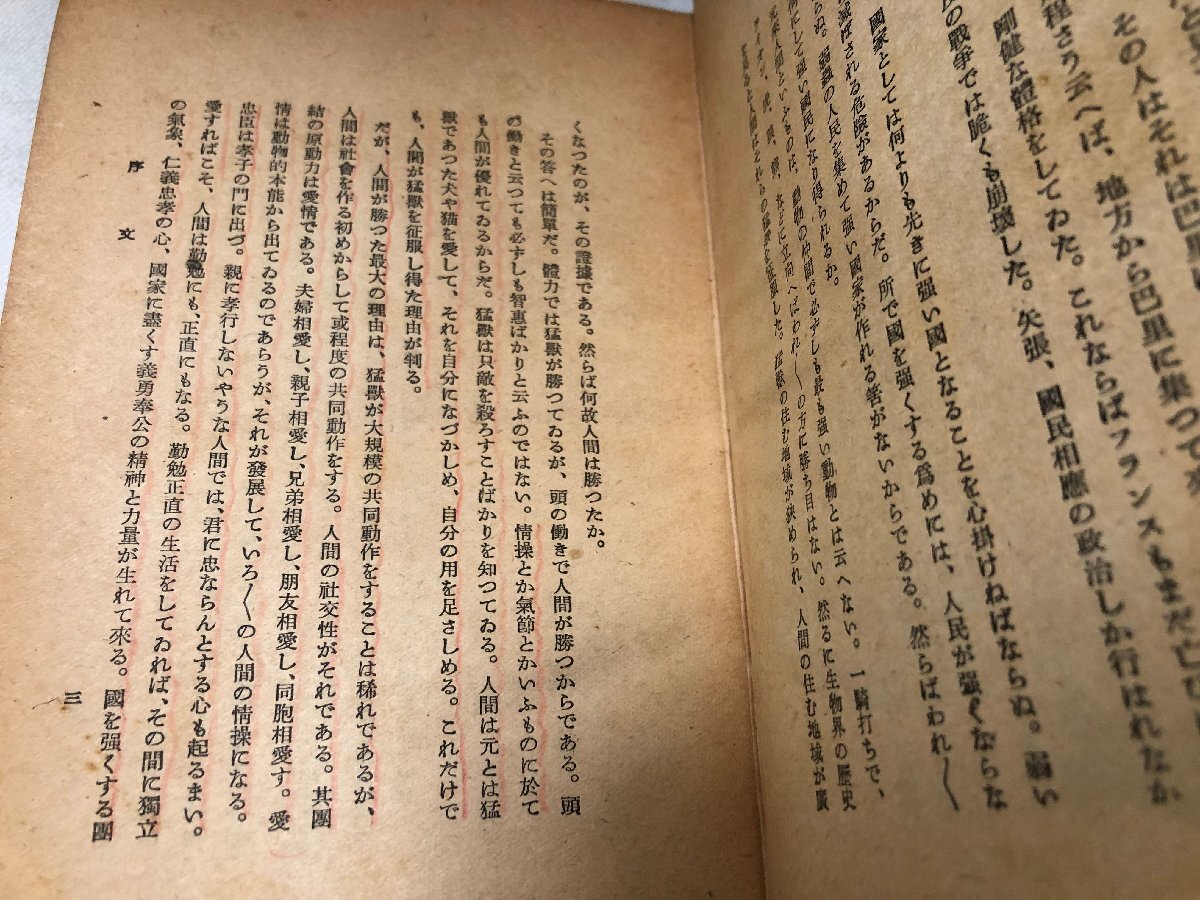 その人はそれは巴里
程さう云へば、地方から巴里に集つて
剛健な體格をしてゐた。これならばフランスもまだ亡び
の戰爭では脆くも崩壞した。矢張、國民相應の政治しか行はれなか
國家としては何よりも先きに强い國となることを心掛けねばならぬ。弱い
滅ぼされる危險があるからだ。所で國を强くする爲めには、人民が强くならな
らぬ。弱蟲の人民を集めて强い國家が作れる筈がないからである。然らばわれ〳〵
にして强い國民になり得られるか。
人間といふものは、動物の仲間で必ずしも最も强い動物とは云へない。一騎打ちで、
などに立向へばわれ〳〵の方に勝ち目はない。然るに生物界の歷史
を征服した。猛獸の住む地域が狹められ、人間の住む地域が廣
くなつたのが、その證據である。然らば何故人間は勝つたか。
その答へは簡單だ。體力では猛獸が勝つてゐるが、頭の働きで人間が勝つからである。頭
の働きと云つても必ずしも智惠ばかりと云ふのではない。情操とか氣節とかいふものに於て
も人間が優れてゐるからだ。猛獸は只敵を殺ろすことばかりを知つてゐる。人間は元とは猛
獸であつた犬や猫を愛して、それを自分になづかしめ、自分の用を足さしめる。これだけで
も、人間が猛獸を征服し得た理由が判る。
だが、人間が勝つた最大の理由は、猛獸が大規模の共同動作をすることは稀れであるが、
人間は社會を作る初めからして或程度の共同動作をする。人間の社交性がそれである。其團
結の原動力は愛情である。夫婦相愛し、親子相愛し、兄弟相愛し、朋友相愛し、同胞相愛す。愛
情は動物的本能から出てゐるのであらうが、それが發展して、いろ〳〵の人間の情操になる。
忠臣は孝子の門に出づ。親に孝行しないやうな人間では、君に忠ならんとする心も起るまい。
愛すればこそ、人間は勤勉にも、正直にもなる。勤勉正直の生活をしてゐれば、その間に獨立
の氣象、仁義忠孝の心、國家に盡くす義勇奉公の精神と力量が生れて來る。國を强くする團
序文
三